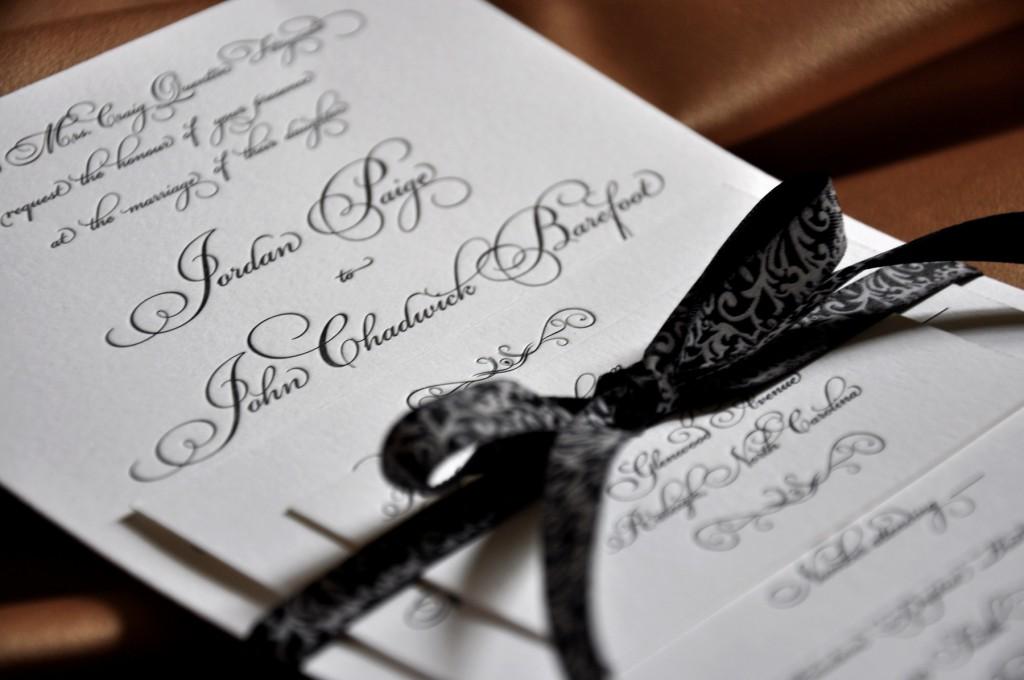 Mrs. Craig Quentin
request the honour of your presence
at the marriage of their daughter
Jordan Paige
to
John Chadwick Barefoot
Glenwood Avenue
Raleigh, North Carolina
Number Attending